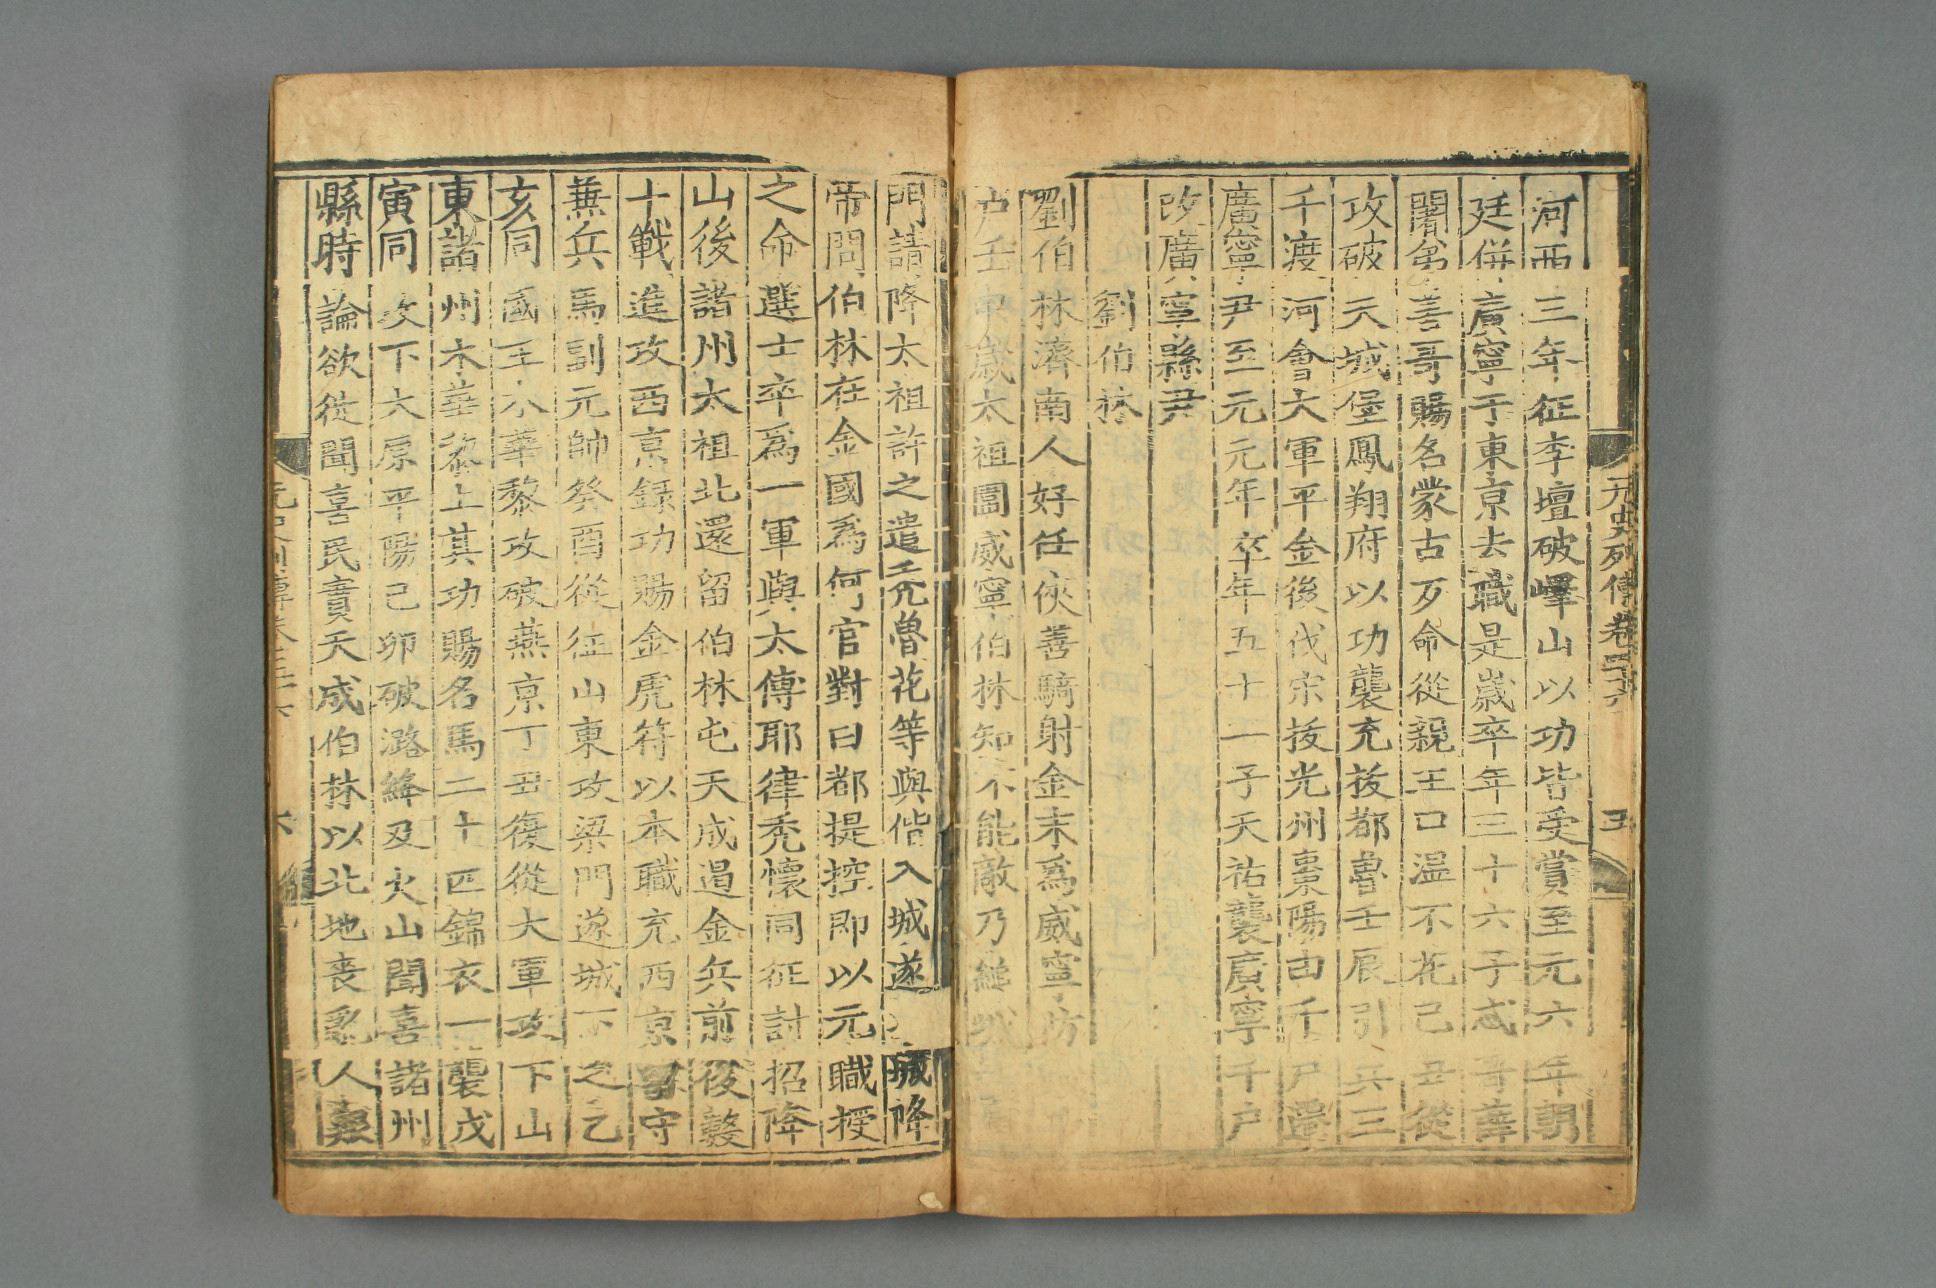 元史列傳卷三十六　五
河西三年征李壇破嶧山以功皆受賞至元六年朝
廷併廣寧于東京去職是歲卒年三十六子忒哥華
闍弟善哥賜名蒙古歹命從親王口溫不花己丑從
攻破天城堡鳳翔府以功襲充拔都魯壬辰引兵三
千渡河會大軍平金後伐宋拔光州棗陽由千戶遷
廣寧尹至元元年卒年五十一子天祐襲廣寧千戶
改廣寧縣尹
劉伯林
劉伯林濟南人好任俠善騎射金末爲威寧防
戶壬申歲太祖圍威寧伯林知不能敵乃縋城
門請降太祖許之遣禿魯花等與偕入城遂 城降
帝問伯林在金國爲何官對曰都提控即以元職授
之命選士卒爲一軍與太傅耶律禿懷同征討招降
山後諸州太祖北還留伯林屯天成遏金兵前後數
十戰進攻西京錄功賜金虎符以本職充西京留守
兼兵馬副元帥癸酉從征山東攻梁門遂城下之乙
亥同國王木華黎攻破燕京丁丑復從大軍攻下山
東諸州木華黎上其功賜名馬二十匹錦衣一襲戊
寅同攻下太原平陽己卯破潞絳及火山聞喜諸州
縣時論欲徙聞喜民實天成伯林以北地喪亂人
元史列傳卷三十六　六